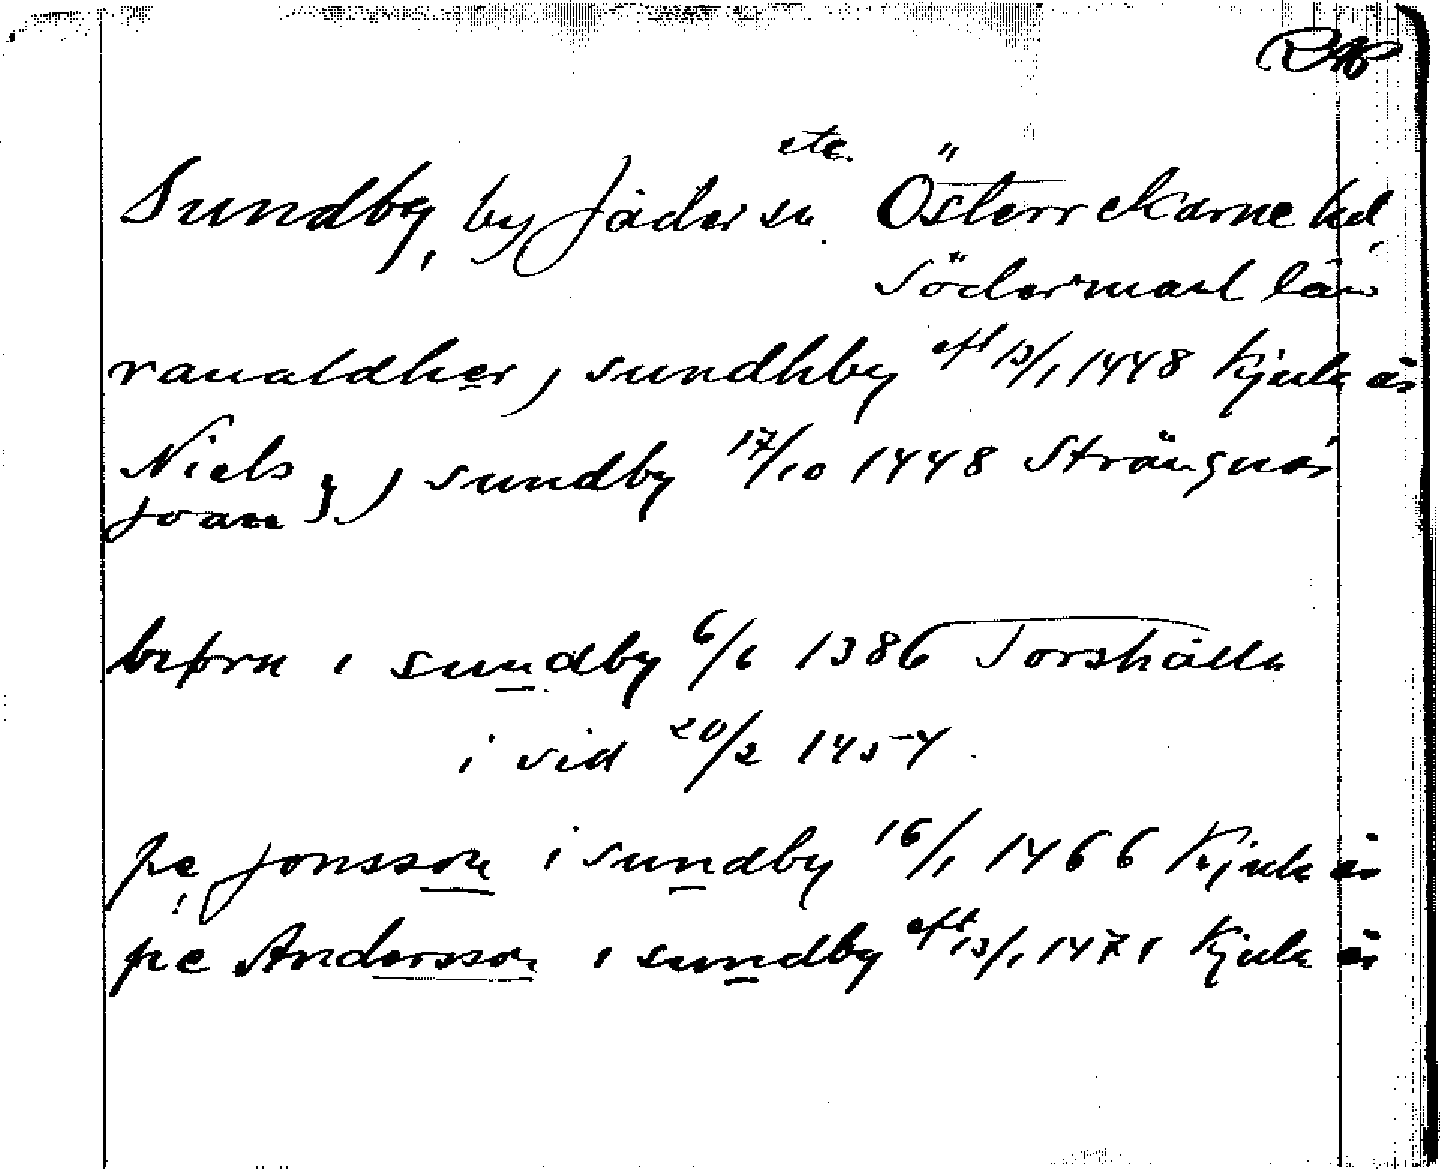 RAp
etc.
Sundby, by Jäder sn. Österrekarne hd,
Södermanl län
ranaldher j sundhby eft 13/1 1448 Kjula ås
Niels
Joan } j sundby 17/10 1448 Strängnäs
i sundby 6/6 1386 Torshälla
i vid 20/2 1454.
pe, jonsson i sundby 16/1 1466 Kjula ås
pe Andersson i sundby eft 13/1 1471 Kjula ås